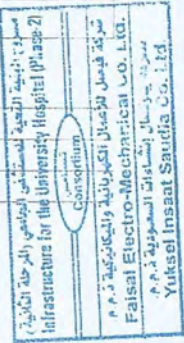 مشروع البنية التحتية للمستشفى الجامعي (المرحلة الثانية)
Infrastructure for the University Hospital (Phase-2)
تضامن
Consortium
شركة فيصل للأعمال الكهربائية والميكانيكية ذ.م.م
Faisal Electro-Mechanical Co. Ltd.
إنشاءات السعودية ذ.م.م
Yuksel Insaat Saudia Co. Ltd